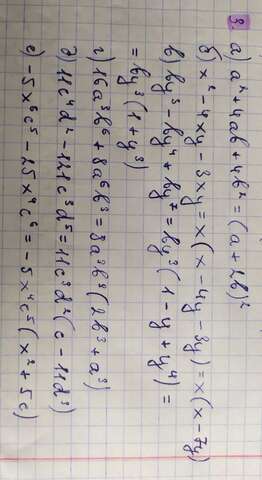 3.
а) a² + 4ab + 4b² = (a + 2b)²
б) x² - 4xy - 3xy = x(x - 4y - 3y) = x(x - 7y)
в) by³ - by⁴ + by⁷ = by³(1 - y + y⁴) =
= by³(1 + y³)
г) 16a³b⁶ + 8a⁶b³ = 8a³b³(2b³ + a³)
д) 11c⁴d² - 121c³d⁵ = 11c³d²(c - 11d³)
е) -5x⁶c⁵ - 25x⁴c⁶ = -5x⁴c⁵(x² + 5c)